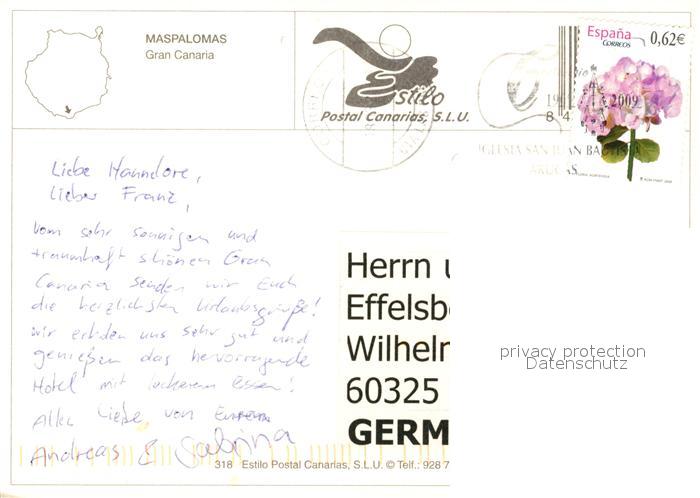 MASPALOMAS
Gran Canaria
Estilo
Postal Canarias, S.L.U.
España
CORREOS
0,62€
2009
IGLESIA SAN JUAN BAUTISTA
ARUCAS
Liebe Hannelore,
Lieber Franz,
vom sehr sonnigen und
traumhaft schönen Gran
Canaria senden wir Euch
die herzlichsten Urlaubsgrüße!
Wir erholen uns sehr gut und
genießen das hervorragende
Hotel mit leckerem Essen!
Alles Liebe von Euren
Andreas & Sabina
Herrn u
Effelsbe
Wilhelm
60325
GERM
privacy protection
Datenschutz
318 Estilo Postal Canarias, S.L.U. © Telf.: 928 7